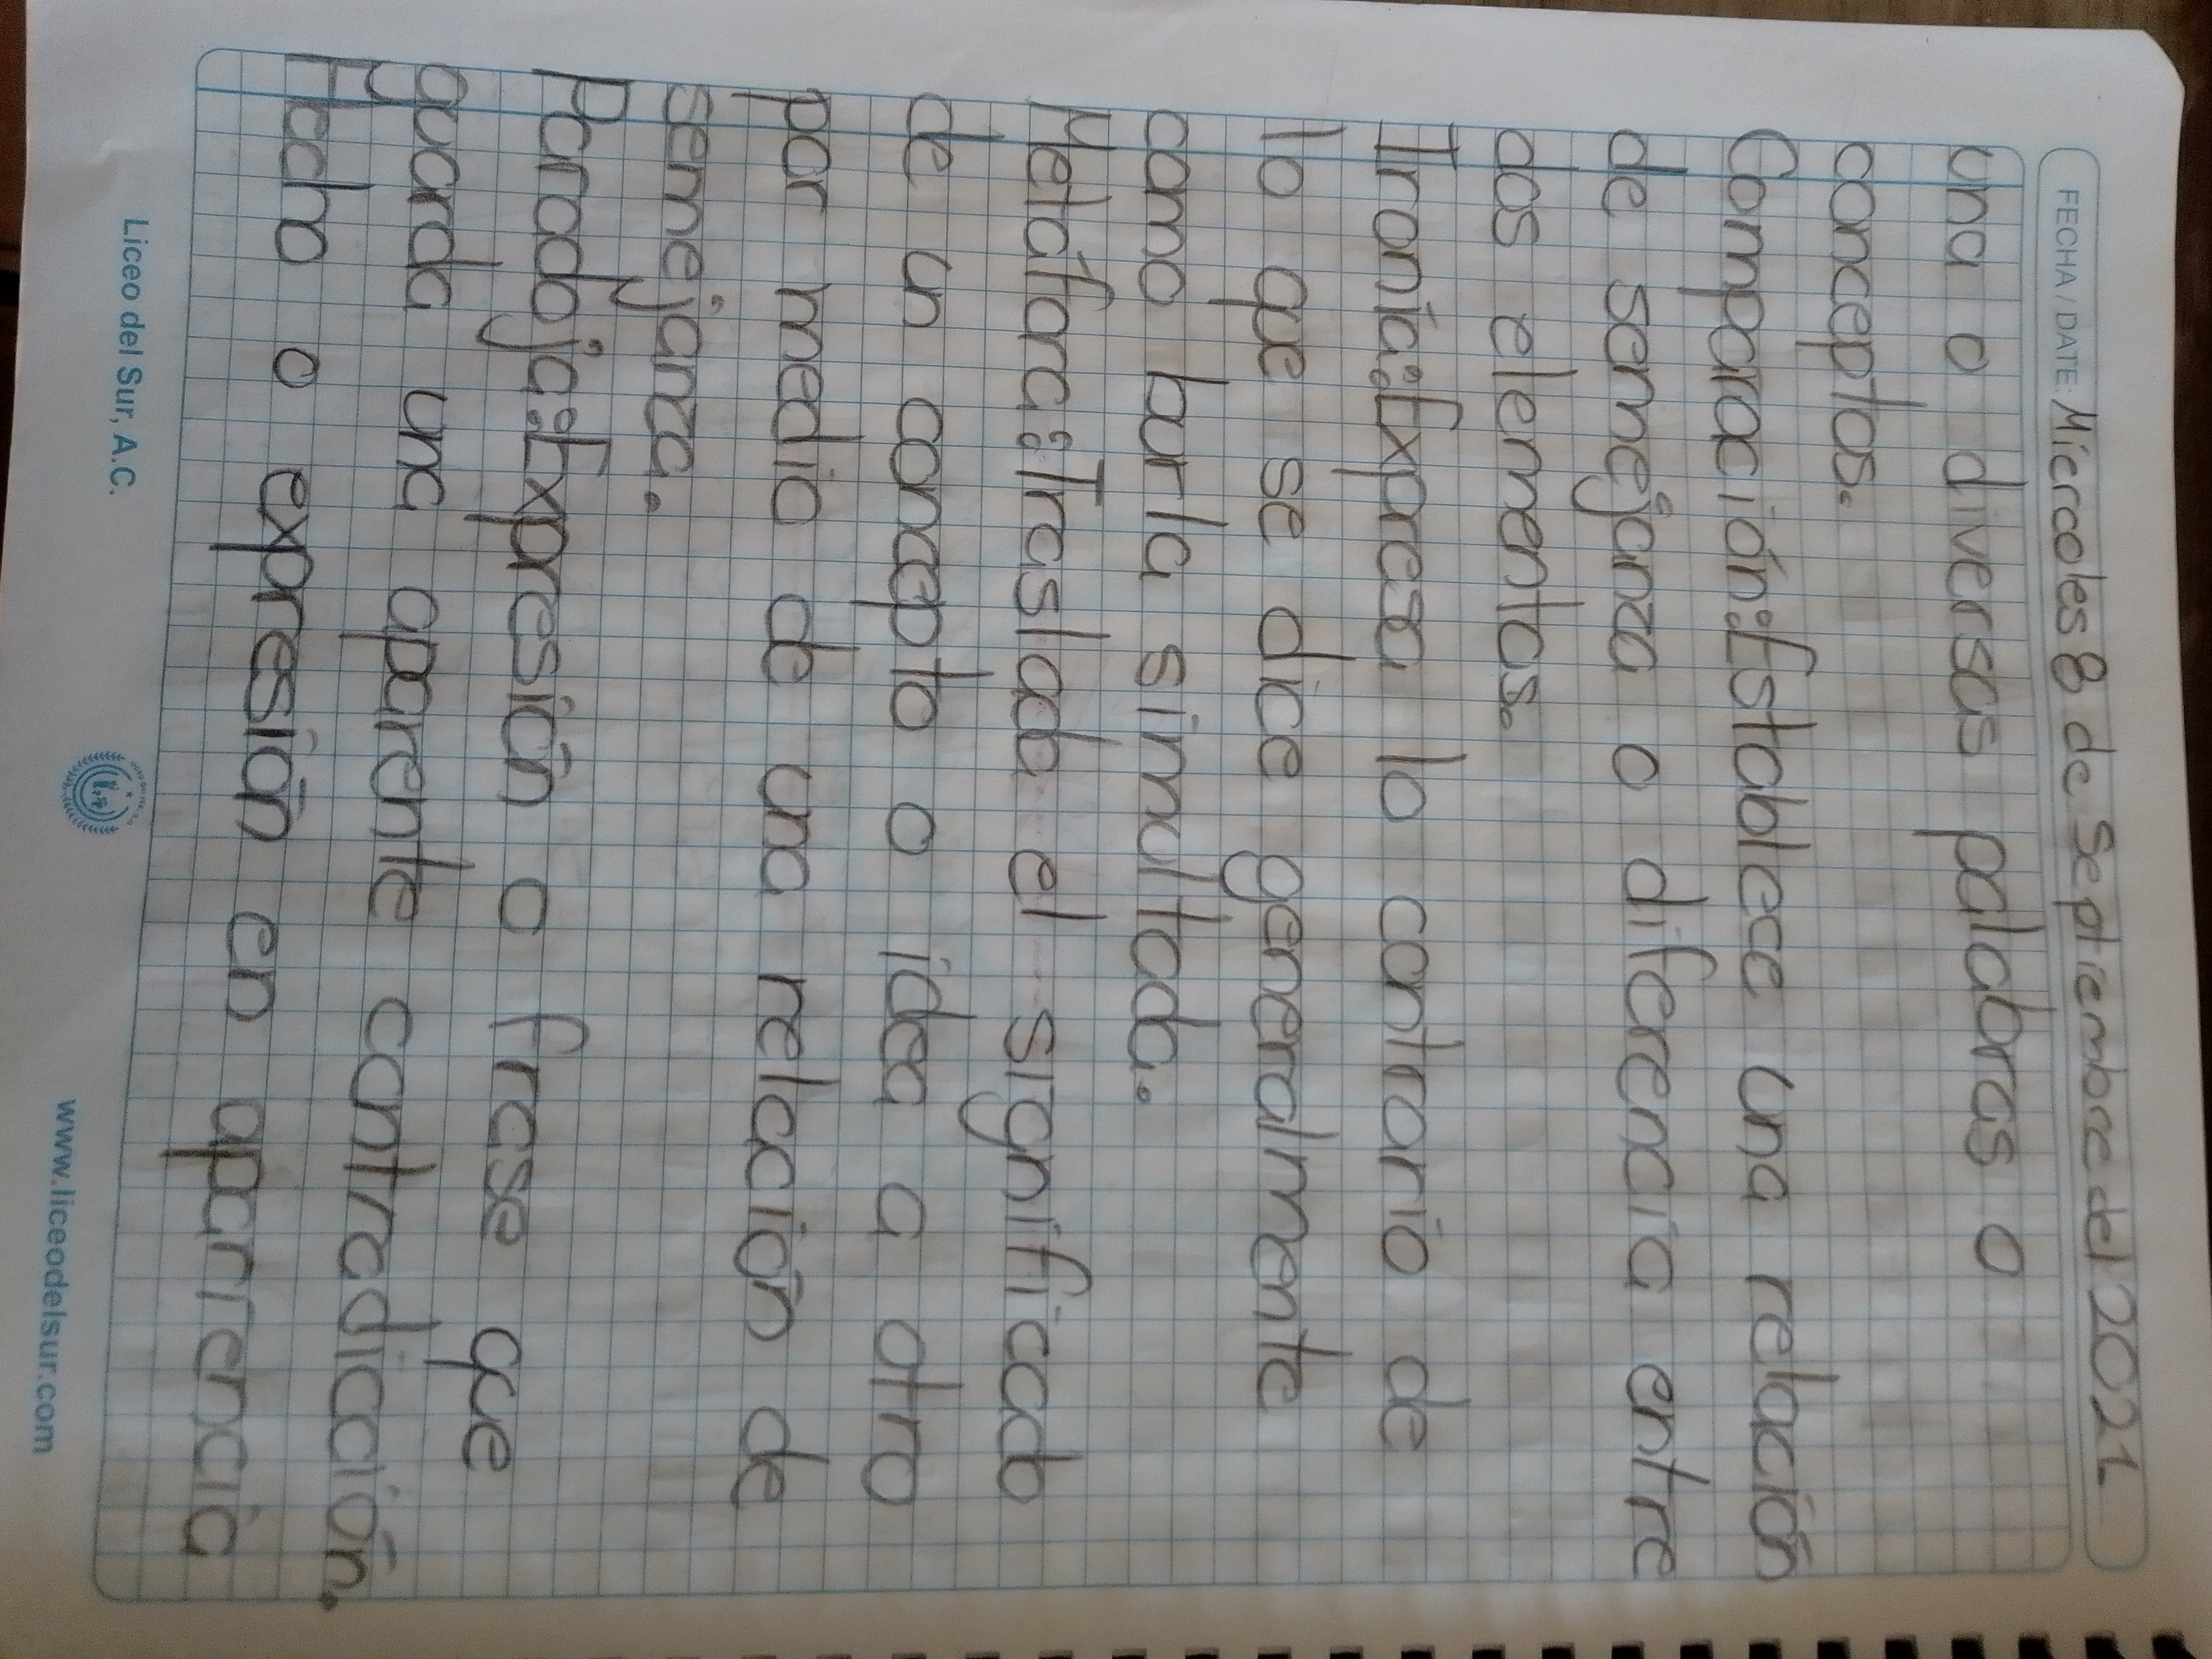 FECHA / DATE: Miercoles 8 de Septiembre del 2021
una o diversas palabras o
conceptos.
Comparación: Establece una relación
de semejanza o diferencia entre
dos elementos.
Ironía: Expresa lo contrario de
lo que se dice generalmente
como burla simultada.
Metáfora: Traslada el significado
de un concepto o idea a otro
por medio de una relación de
semejanza.
Paradoja: Expresión o frase que
guarda una aparente contradicción.
Hecho o expresión en aparriencia
Liceo del Sur, A.C.
www.liceodelsur.com